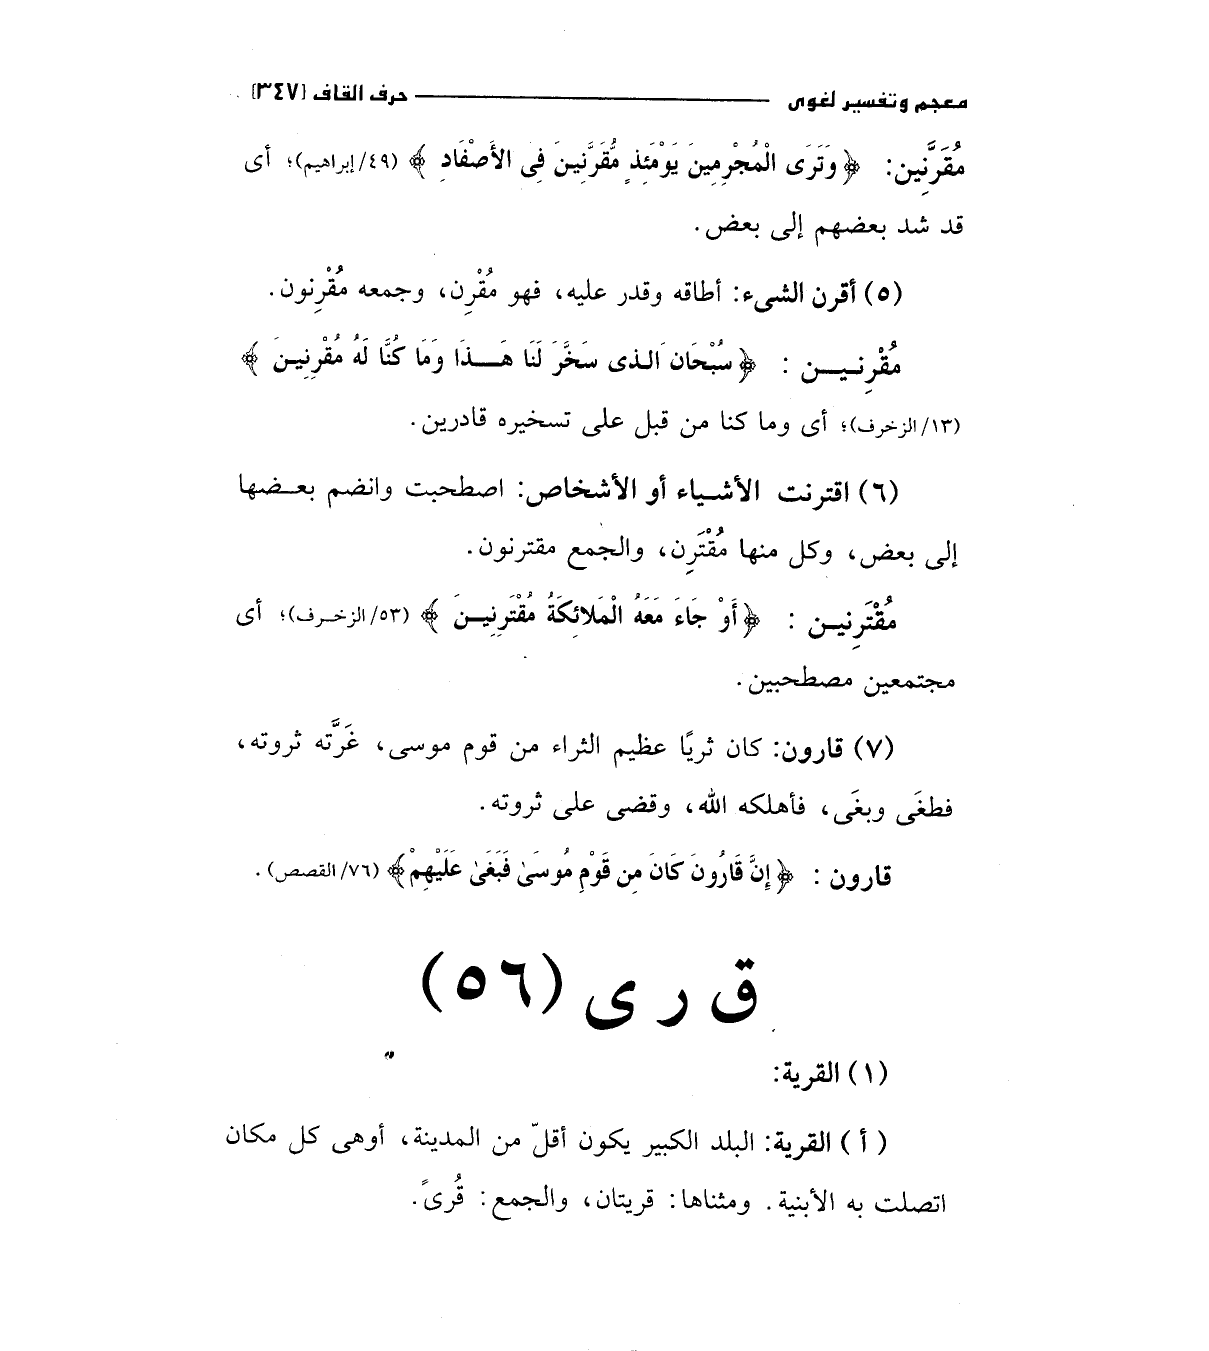 معجم وتفسير لغوى ـــــــــ حرف القاف [٣٤٧]
مُقَرَّنِين: ﴿ وَتَرَى الْمُجْرِمِينَ يَوْمَئِذٍ مُّقَرَّنِينَ فِى الأَصْفَادِ ﴾ (٤٩/إبراهيم)؛ أى
قد شد بعضهم إلى بعض.
(٥) أقرن الشىء: أطاقه وقدر عليه، فهو مُقْرِن، وجمعه مُقْرِنون.
مُقْرِنـيــن : ﴿ سُبْحَانَ الذى سَخَّرَ لَنَا هَــذَا وَمَا كُنَّا لَهُ مُقْرِنِينَ ﴾
(١٣/الزخرف)؛ أى وما كنا من قبل على تسخيره قادرين.
(٦) اقترنت الأشـياء أو الأشخاص: اصطحبت وانضم بعـضها
إلى بعض، وكل منها مُقْتَرِن، والجمع مقترنون.
مُقْتَرِنيـن : ﴿ أَوْ جَاءَ مَعَهُ الْمَلائِكَةُ مُقْتَرِنِيـنَ ﴾ (٥٣/الزخـرف)؛ أى
مجتمعين مصطحبين.
(٧) قارون: كان ثريًا عظيم الثراء من قوم موسى، غَرَّته ثروته،
فطغَى وبغَى، فأهلكه الله، وقضى على ثروته.
قارون : ﴿ إِنَّ قَارُونَ كَانَ مِن قَوْمِ مُوسَىٰ فَبَغَىٰ عَلَيْهِمْ ﴾ (٧٦/القصص).
ق ر ى (٥٦)
(١) القرية:
( أ ) القرية: البلد الكبير يكون أقلّ من المدينة، أوهى كل مكان
اتصلت به الأبنية. ومثناها: قريتان، والجمع: قُرىً.